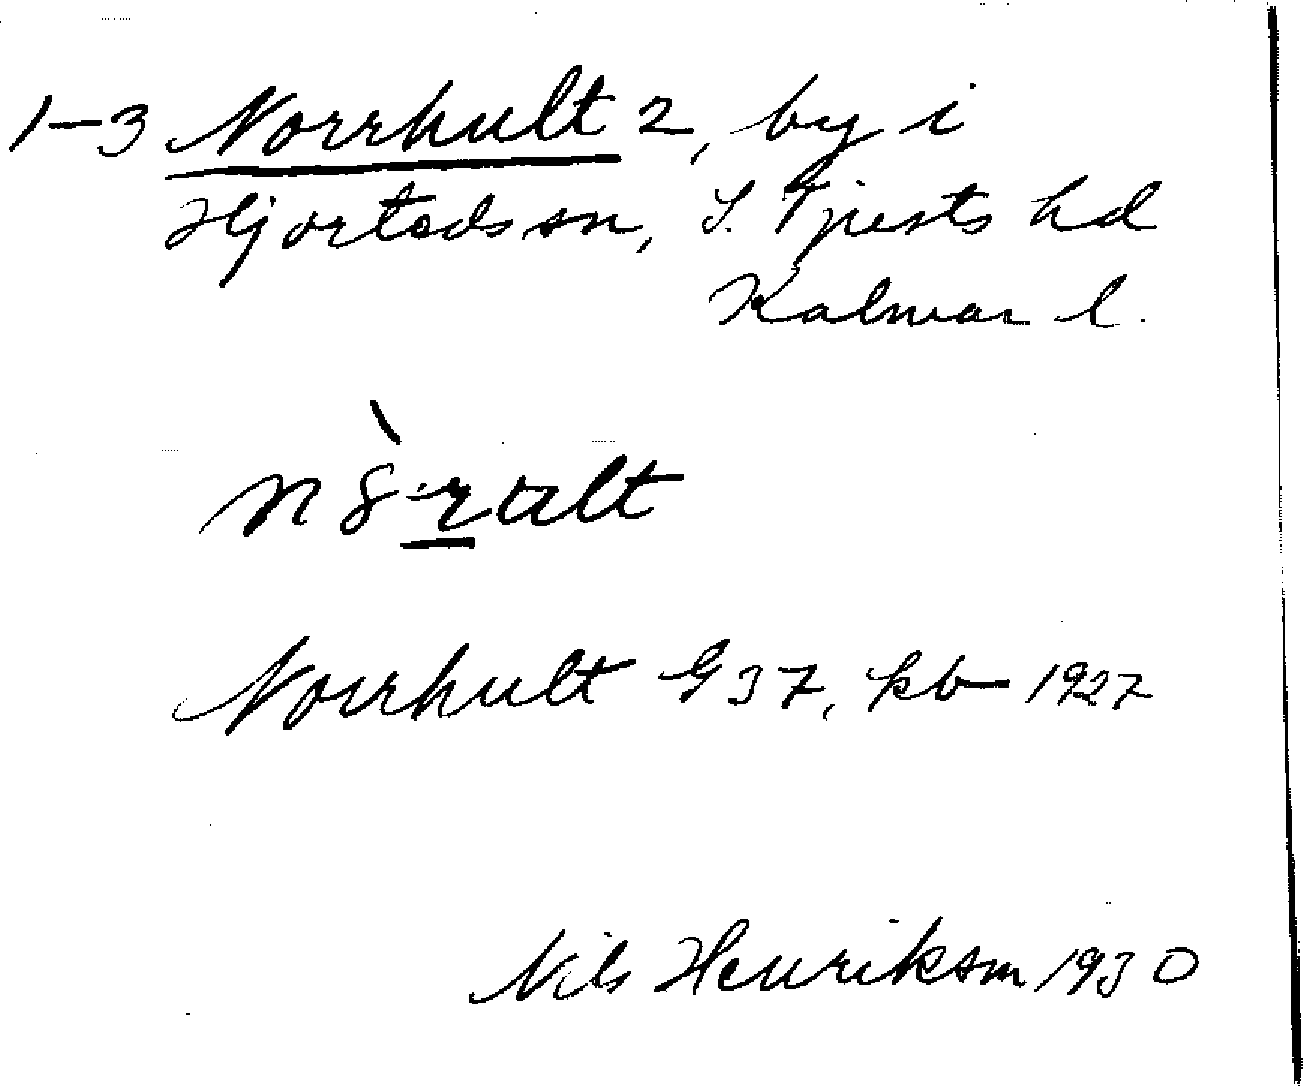 1-3 Norrhult 2, by i
Hjorteds sn, S. Tjusts hd
Kalmar l.
Norrhult G 37, kb 1927
Nils Henrikson 1930